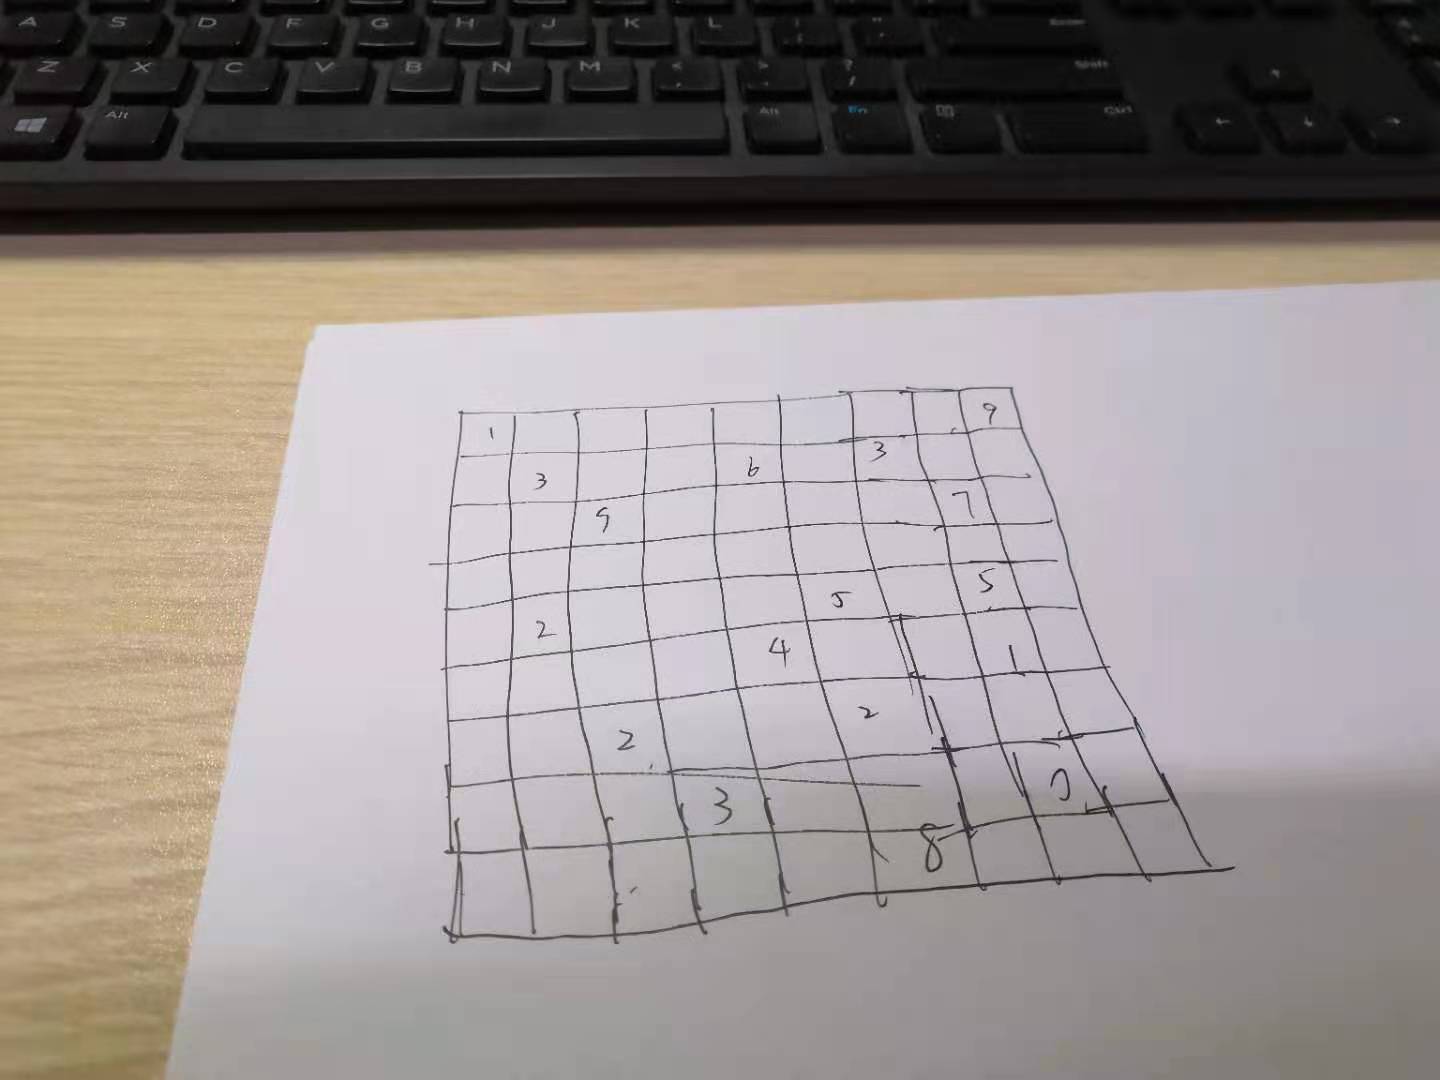 A S D F G H J K L : ; " ' Enter
Z X C V B N M < , > . ? / Shift
Alt Alt Fn Ctrl
1 9
3 6 3
9 7
5 5
2 4 1
2 2
3
8